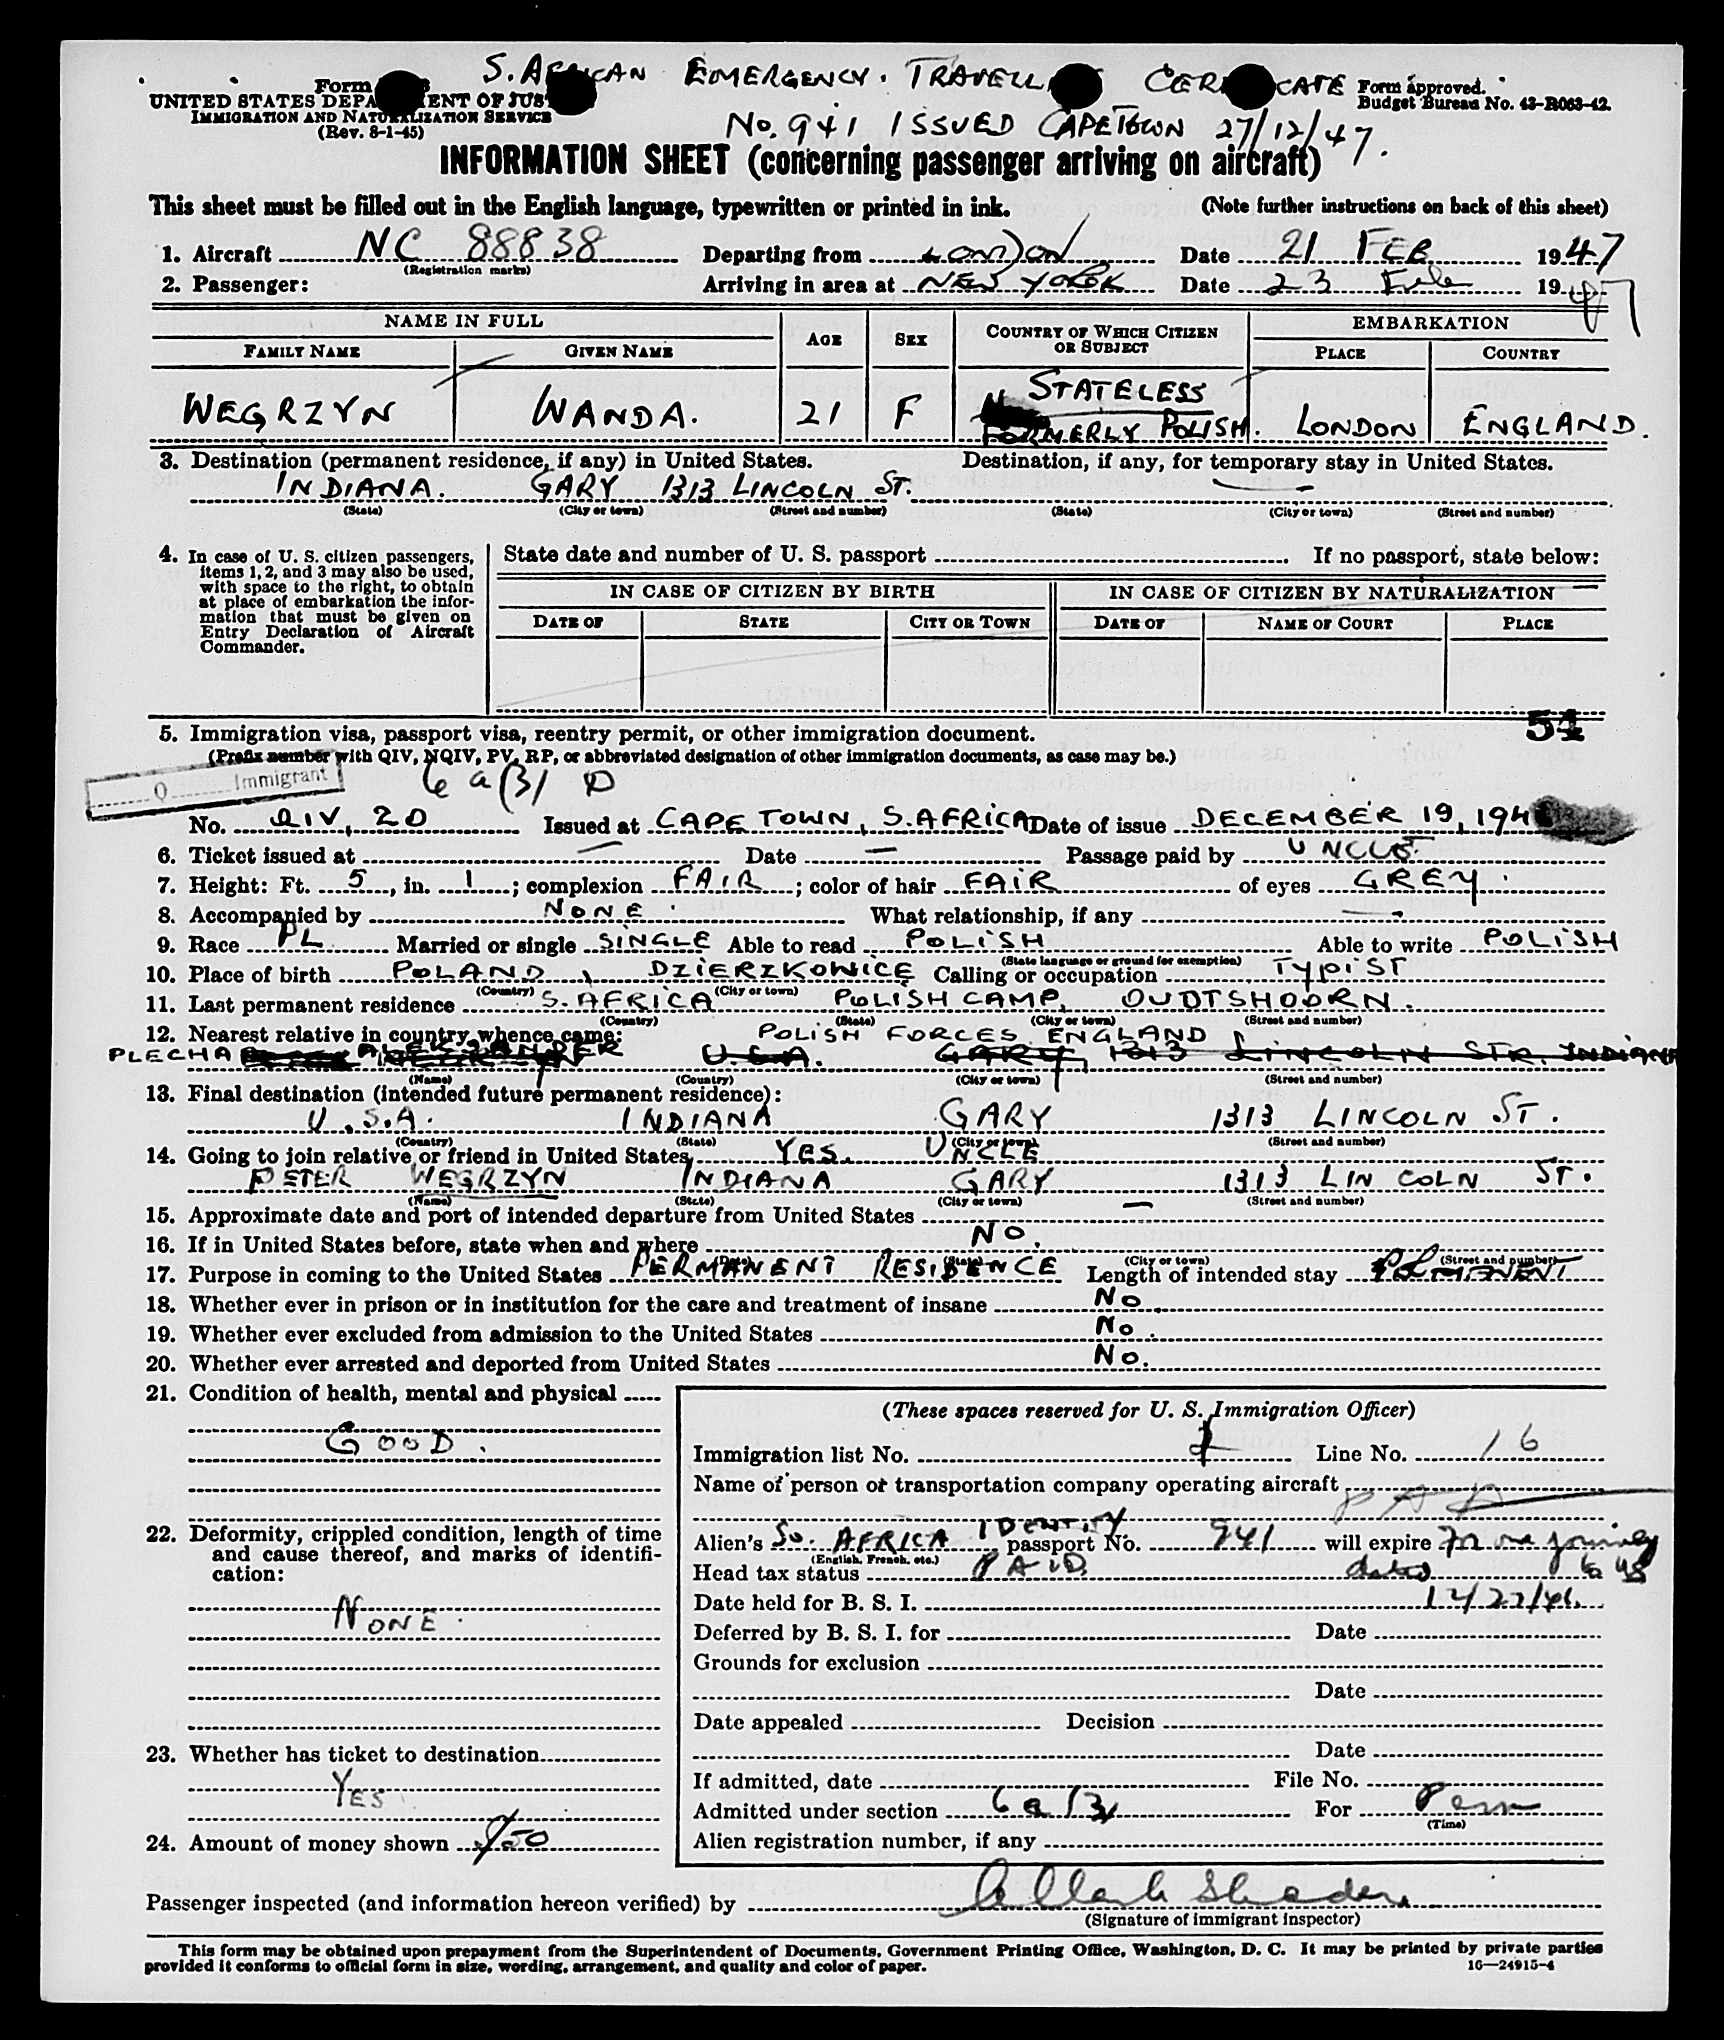 S. AFRICAN EMERGENCY. TRAVELL CERTIFICATE
No. 941 ISSUED CAPETOWN 27/12/47.
Form
UNITED STATES DEPARTMENT OF JUSTICE
IMMIGRATION AND NATURALIZATION SERVICE
(Rev. 8-1-45)
Form approved.
Budget Bureau No. 43-R063-42.
INFORMATION SHEET (concerning passenger arriving on aircraft)
This sheet must be filled out in the English language, typewritten or printed in ink. (Note further instructions on back of this sheet)
1. Aircraft NC 88838 Departing from LONDON Date 21 FEB 1947
(Registration marks)
2. Passenger: Arriving in area at NEW YORK Date 23 Feb 1947
NAME IN FULL AGE SEX COUNTRY OF WHICH CITIZEN OR SUBJECT EMBARKATION
FAMILY NAME GIVEN NAME PLACE COUNTRY
STATELESS
WEGRZYN WANDA. 21 F FORMERLY POLISH. LONDON ENGLAND.
3. Destination (permanent residence, if any) in United States. Destination, if any, for temporary stay in United States.
INDIANA. GARY 1313 LINCOLN ST.
(State) (City or town) (Street and number) (State) (City or town) (Street and number)
4. In case of U. S. citizen passengers, items 1, 2, and 3 may also be used, with space to the right, to obtain at place of embarkation the information that must be given on Entry Declaration of Aircraft Commander.
State date and number of U. S. passport If no passport, state below:
IN CASE OF CITIZEN BY BIRTH IN CASE OF CITIZEN BY NATURALIZATION
DATE OF STATE CITY OR TOWN DATE OF NAME OF COURT PLACE
54
5. Immigration visa, passport visa, reentry permit, or other immigration document.
(Prefix number with QIV, NQIV, PV, RP, or abbreviated designation of other immigration documents, as case may be.)
Q Immigrant
6 a (3) D
No. QIV, 20 Issued at CAPE TOWN, S. AFRICA Date of issue DECEMBER 19, 194
6. Ticket issued at — Date — Passage paid by UNCLE.
7. Height: Ft. 5, in. 1; complexion FAIR; color of hair FAIR of eyes GREY.
8. Accompanied by NONE. What relationship, if any —
9. Race PL Married or single SINGLE Able to read POLISH Able to write POLISH
(State language or ground for exemption)
10. Place of birth POLAND, DZIERZKOWICE Calling or occupation TYPIST
(Country) (City or town)
11. Last permanent residence S. AFRICA POLISH CAMP, OUDTSHOORN.
(Country) (State) (City or town) (Street and number)
12. Nearest relative in country whence came: POLISH FORCES ENGLAND
PLECHA ALEKSANDER U.S.A. GARY, 1313 LINCOLN STR. INDIANA
(Name) (Country) (City or town) (Street and number)
13. Final destination (intended future permanent residence):
U.S.A. INDIANA GARY 1313 LINCOLN ST.
(Country) (State) (City or town) (Street and number)
14. Going to join relative or friend in United States YES. UNCLE
PETER WEGRZYN INDIANA GARY 1313 LINCOLN ST.
(Name) (State) (City or town) (Street and number)
15. Approximate date and port of intended departure from United States —
16. If in United States before, state when and where NO.
(Date) (State) (City or town) (Street and number)
17. Purpose in coming to the United States PERMANENT RESIDENCE Length of intended stay PERMANENT
18. Whether ever in prison or in institution for the care and treatment of insane No.
19. Whether ever excluded from admission to the United States No.
20. Whether ever arrested and deported from United States No.
21. Condition of health, mental and physical
GOOD.
22. Deformity, crippled condition, length of time and cause thereof, and marks of identification:
NONE.
23. Whether has ticket to destination
YES
24. Amount of money shown $50
(These spaces reserved for U. S. Immigration Officer)
Immigration list No. Line No. 16
Name of person or transportation company operating aircraft P A A
Alien's So. AFRICA IDENTITY passport No. 941 will expire For one journey
(English, French, etc.) to US
Head tax status PAID dated
12/27/46.
Date held for B. S. I.
Deferred by B. S. I. for Date
Grounds for exclusion
Date
Date appealed Decision
Date
If admitted, date File No.
Admitted under section 6 a (3) For Perm
(Time)
Alien registration number, if any
Passenger inspected (and information hereon verified) by
(Signature of immigrant inspector)
This form may be obtained upon prepayment from the Superintendent of Documents, Government Printing Office, Washington, D. C. It may be printed by private parties
provided it conforms to official form in size, wording, arrangement, and quality and color of paper.
16—24915-4